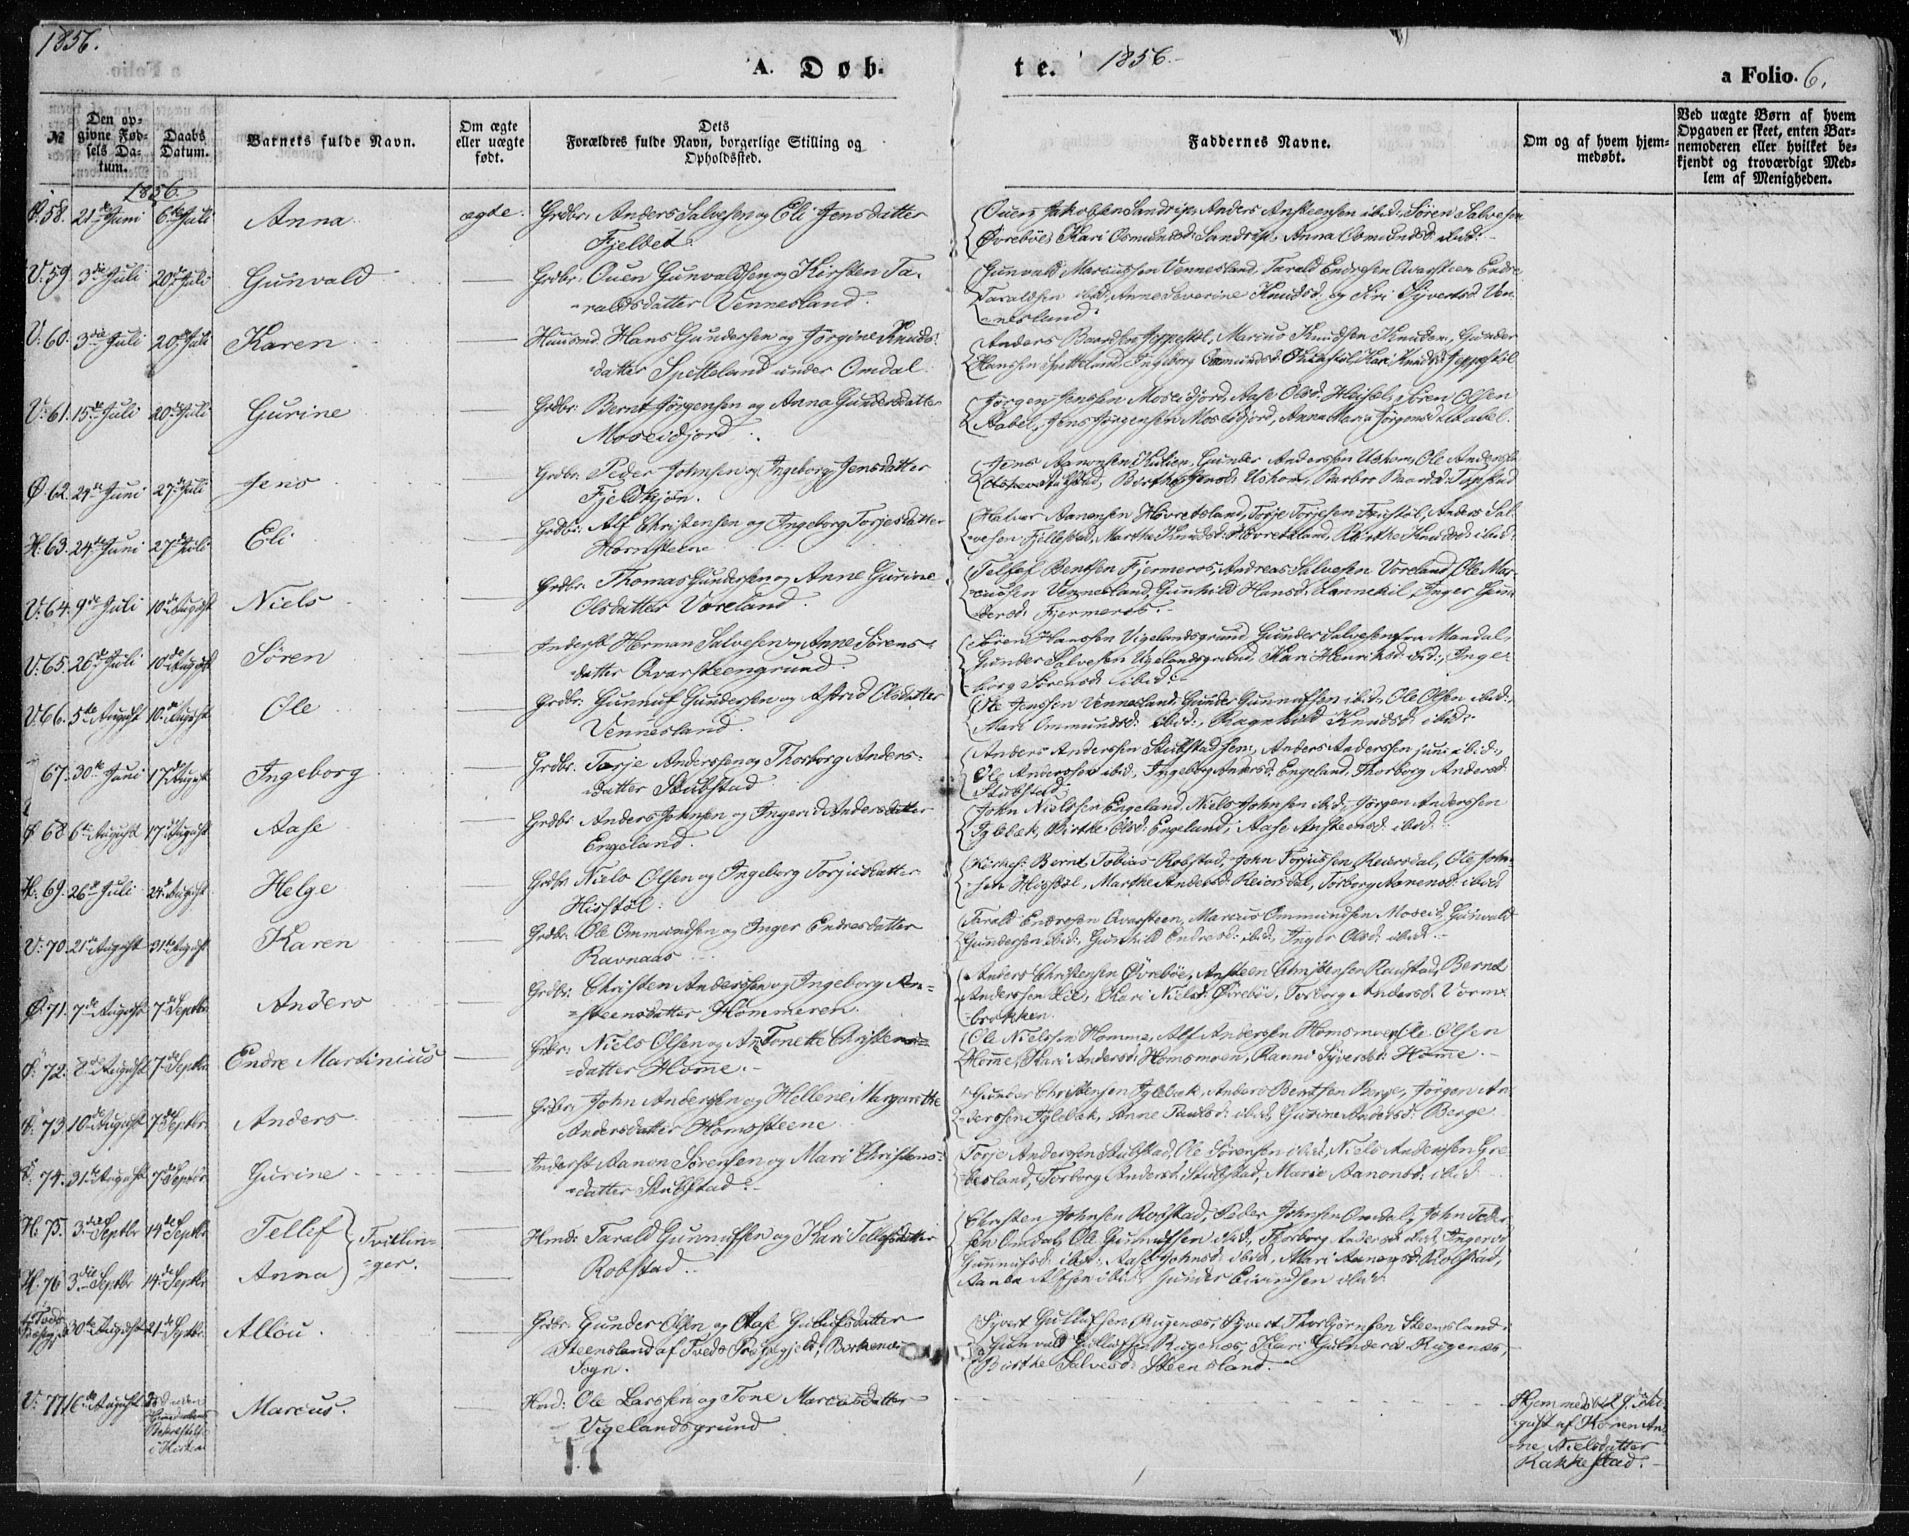 1856.
A. Døb-
te. 1856.-
a Folio. 6.
№
Den op-
givne Fød-
sels Da-
tum.
Daabs
Datum.
Barnets fulde Navn.
Om ægte
eller uægte
født.
Dets
Forældres fulde Navn, borgerlige Stilling og
Opholdssted.
Faddernes Navne.
Om og af hvem hjem-
medøbt.
Ved uægte Børn af hvem
Opgaven er skeet, enten Bar-
nemoderen eller hvilket be-
kjendt og troværdigt Med-
lem af Menigheden.
1856
Ø. 58. 21de Juni 6te Juli Anna ægte. Grdbr: Anders Salvesen og Eli Jensdatter
Fjelbet.
Ouen Jakobsen Sandrip, Anders Ansteensen ibid:, Søren Salvesen
Øvrebøe, Kari Osmundsd: Sandrip, Anna Osmundsd: ibid:
V: 59. 3die Juli 20de Juli Gunvald Grdbr: Ouen Gunvaldsen og Kirsten Ta-
raldsdatter Vennesland.
Gunvald Marcussen Vennesland, Tarald Endresen Qvarsteen, Endre
Taraldsen ibid:, Anne Severine Knudsd: og Siri Syvertsd: Ven-
nesland.
V: 60. 3die Juli 20de Juli Karen Huusmd. Hans Gundersen og Jørgine Knuds-
datter Spetteland under Omdal.
Anders Baardsen Jeppestøl, Marcus Knudsen Knuden, Gunder
Hansen Spetteland, Ingeborg Osmundsd: Kari Knudsd: Jeppestøl
V: 61. 15de Juli 20de Juli Gurine Grdbr: Bernt Jørgensen og Anna Gundersdatter
Moseidjord.
Jørgen Jenssen Moseidjord, Aase Olsd: Heisel, Søren Olsen
Aabel, Jens Jørgensen Moseidjord, Anna Maria Jørgensd: Aabel.
Ø. 62. 29de Juni 27de Juli Jens Grdbr: Peder Johnsen og Ingeborg Jensdatter
Fjeldkjøn.
Jens Aanonsen Kulien, Gunder Anderssen Uskom, Ole Anderssen
Birthe Jensd: Uskom, Barbro Baardsd: Topstad
H: 63. 24de Juni 27de Juli Eli Grdbr: Alf Christensen og Ingeborg Torjesdatter
Hornsteen
Halvor Aanensen Hovretsland, Torje Torjesen Fruestøl, Anders Sal-
vesen Fjellestad, Marthe Knudsd: Hovretsland, Birthe Knudsd: ibid:
V: 64. 9de Juli 10de August Niels Grdbr: Thomas Gundersen og Anne Gurine
Olsdatter Voreland.
Tellef Bentsen Fjermeros, Andreas Salvesen Voreland, Ole Mar-
cussen Vennesland, Gunhild Hansd: Lonnekil, Inger Gun-
dersd: Fjermeros.
V: 65. 26de Juli 10de August Søren Inderst Herman Salvesen og Anne Sørens-
datter Qvarsteengrund.
Søren Hanssen Vigelandsgrund, Gunder Salvesen fra Mandal,
Gunder Salvesen Vigelandsgrund, Kari Henriksd: ibid:, Inge-
borg Sørensd: ibid:
V: 66. 5te August 10de August Ole Grdbr: Gunnuf Gundersen og Astrid Olsdatter
Vennesland.
Ole Jenssen Vennesland, Gunder Gunnufsen ibid:, Ole Olsen ibid:,
Mari Ommundsd: ibid:, Ragnhild Knudsd: ibid:
67. 30te Juni 17de August Ingeborg Grdbr: Torje Anderssen og Thorborg Anders-
datter Stubstad
Anders Anderssen Stubstad sen:, Anders Anderssen jun: ibid:,
Ole Anderssen ibid:, Ingeborg Andersd: Engeland, Thorborg Andersd:
Stubstad
Ø 68 6te August 17de August Aase Grdbr: Anders Johnsen og Ingerid Andersdatter
Engeland.
John Nielssen Engeland, Niels Johnsen ibid:, Jørgen Anderssen
Iglebek, Birthe Olsd: Engeland, Aase Ansteensd: ibid:
H. 69. 26de Juli 24de August Helge Grdbr: Niels Olsen og Ingeborg Torjusdatter
Hisstøl.
Kirkes: Bernt Tobias Robstad, John Torjussen Reiersdal, Ole John-
sen Hisstøl, Marthe Andersd: Reiersdal, Torborg Aanensd: ibid:
V: 70. 21de August 31te August Karen Grdbr: Ole Ommundsen og Inger Endresdatter
Ravnaas
Tarald Endresen Qvarsteen, Marcus Ommundsen Moseid, Gunvald
Gundersen ibid:, Gunhild Endresd: ibid:, Inger Olsd: ibid:
Ø. 71. 7de August 7de Septbr. Anders Grdbr: Christen Anderssen og Ingeborg An-
steensdatter Hommeren.
Anders Christensen Øvrebøe, Ansteen Christensen Raustad, Bernt
Anderssen Lie, Kari Nielsd: Øvrebø, Torborg Andersd: Vorm-
brokken
Ø: 72. 8de August 7de Septbr. Endre Martinius Grdbr: Niels Olsen og Antonette Christens-
datter Homme.-
Ole Nielssen Homme, Alf Andersen Homsmoen, Ole Olsen
Homme, Kari Andersd: Homsmoen, Ranni Syversd: Home.-
Ø. 73 10de August 7de Septbr. Anders Grdbr: John Andersen og Hellene Margarethe
Andersdatter Homssteene
Gunder Christensen Iglebek, Anders Berntsen Berge, Jørgen An-
derssen Iglebek, Anne Paulsd: ibid:, Gurine Andersd: Berge
Ø. 74. 31te August 7de Septbr. Gurine Inderst Aanon Sørensen og Mari Christens-
datter Stubstad.
Torje Anderssen Stubstad, Ole Sørensen ibid:, Niels Anderssen Gre-
besland, Torborg Andersd: Stubstad, Marie Aanonsd: ibid:
H: 75. 3die Septbr 14de Septbr. Tellef Tvillin-
ger. Hmd: Tarald Gunnufsen og Kari Tellefsdatter
Robstad.
H. 76 3die Septbr 14de Septbr Anna
Christen Johnsen Robstad, Peder Johnsen Omdal, John Peder-
sen Omdal, Ole Gunnufsen ibid:, Thorborg Andersd: ibid:, Ingeroe
Gunnufsd: ibid:, Aase Johnsd: ibid:, Mari Aanensd: Robstad,
Aanen Alfsen ibid:, Gunder Eivindsen ibid:
30te August 21de Septbr. Allou. Grdbr: Gunder Olsen og Aase Gullufsdatter
Steensland af Tveds Præstegjeld,
Sogn.
Syvert Gullufsen Rugenæs, Syvert Thorbjørnsen Steensland,
Gunvald Gullufsen Rugenæs, Kari Gundersd: Rugenæs,
Birthe Salvesd: Steensland.
V: 77 16de August Marcus. Hmd: Ole Larssen og Tone Marcusdatter
Vigelandsgrund
i Kirken
Hjemmedøbt
gust af Karen An-
ne Nielsdatter
Rakkestad.